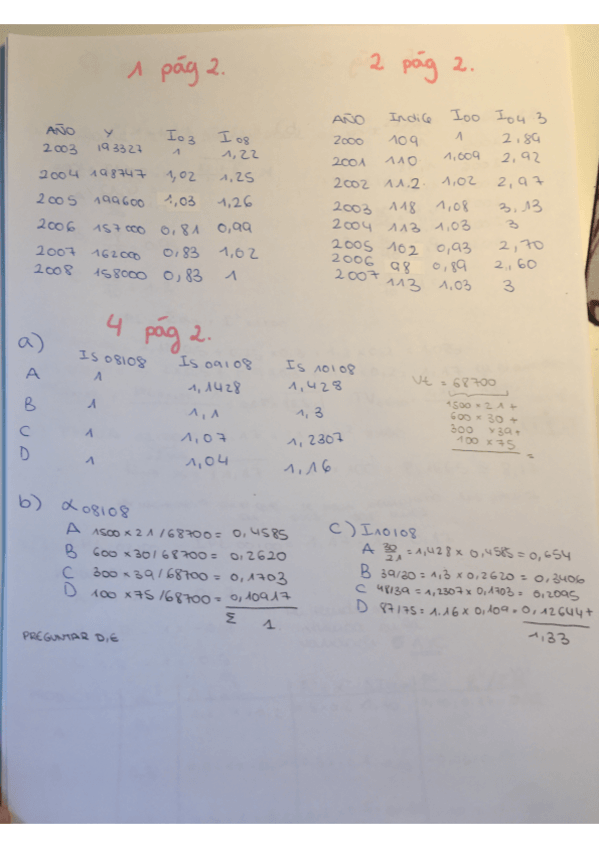 1 pág 2.
AÑO Y I03 I08
2003 193327 1 1,22
2004 198747 1,02 1,25
2005 199600 1,03 1,26
2006 157000 0,81 0,99
2007 162000 0,83 1,02
2008 158000 0,83 1
2 pág 2.
AÑO Indi6 I00 I04 3
2000 109 1 2,89
2001 110 1,009 2,92
2002 112 1,02 2,97
2003 118 1,08 3,13
2004 113 1,03 3
2005 102 0,93 2,70
2006 98 0,89 2,60
2007 113 1,03 3
4 pág 2.
a)
IS 08108 IS 09108 IS 10108
A 1 1,1428 1,428
B 1 1,1 1,3
C 1 1,07 1,2307
D 1 1,04 1,16
Vt = 68700
1500 × 21 +
600 × 30 +
300 × 39 +
100 × 75
=
b) α 08108
A 1500 × 21 / 68700 = 0,4585
B 600 × 30 / 68700 = 0,2620
C 300 × 39 / 68700 = 0,1703
D 100 × 75 / 68700 = 0,10917
Σ 1
PREGUNTAR D,E
C) I10108
A 30/21 = 1,428 × 0,4585 = 0,654
B 39/30 = 1,3 × 0,2620 = 0,3406
C 48/39 = 1,2307 × 0,1703 = 0,2095
D 87/75 = 1.16 × 0,109 = 0,12644 +
1,33